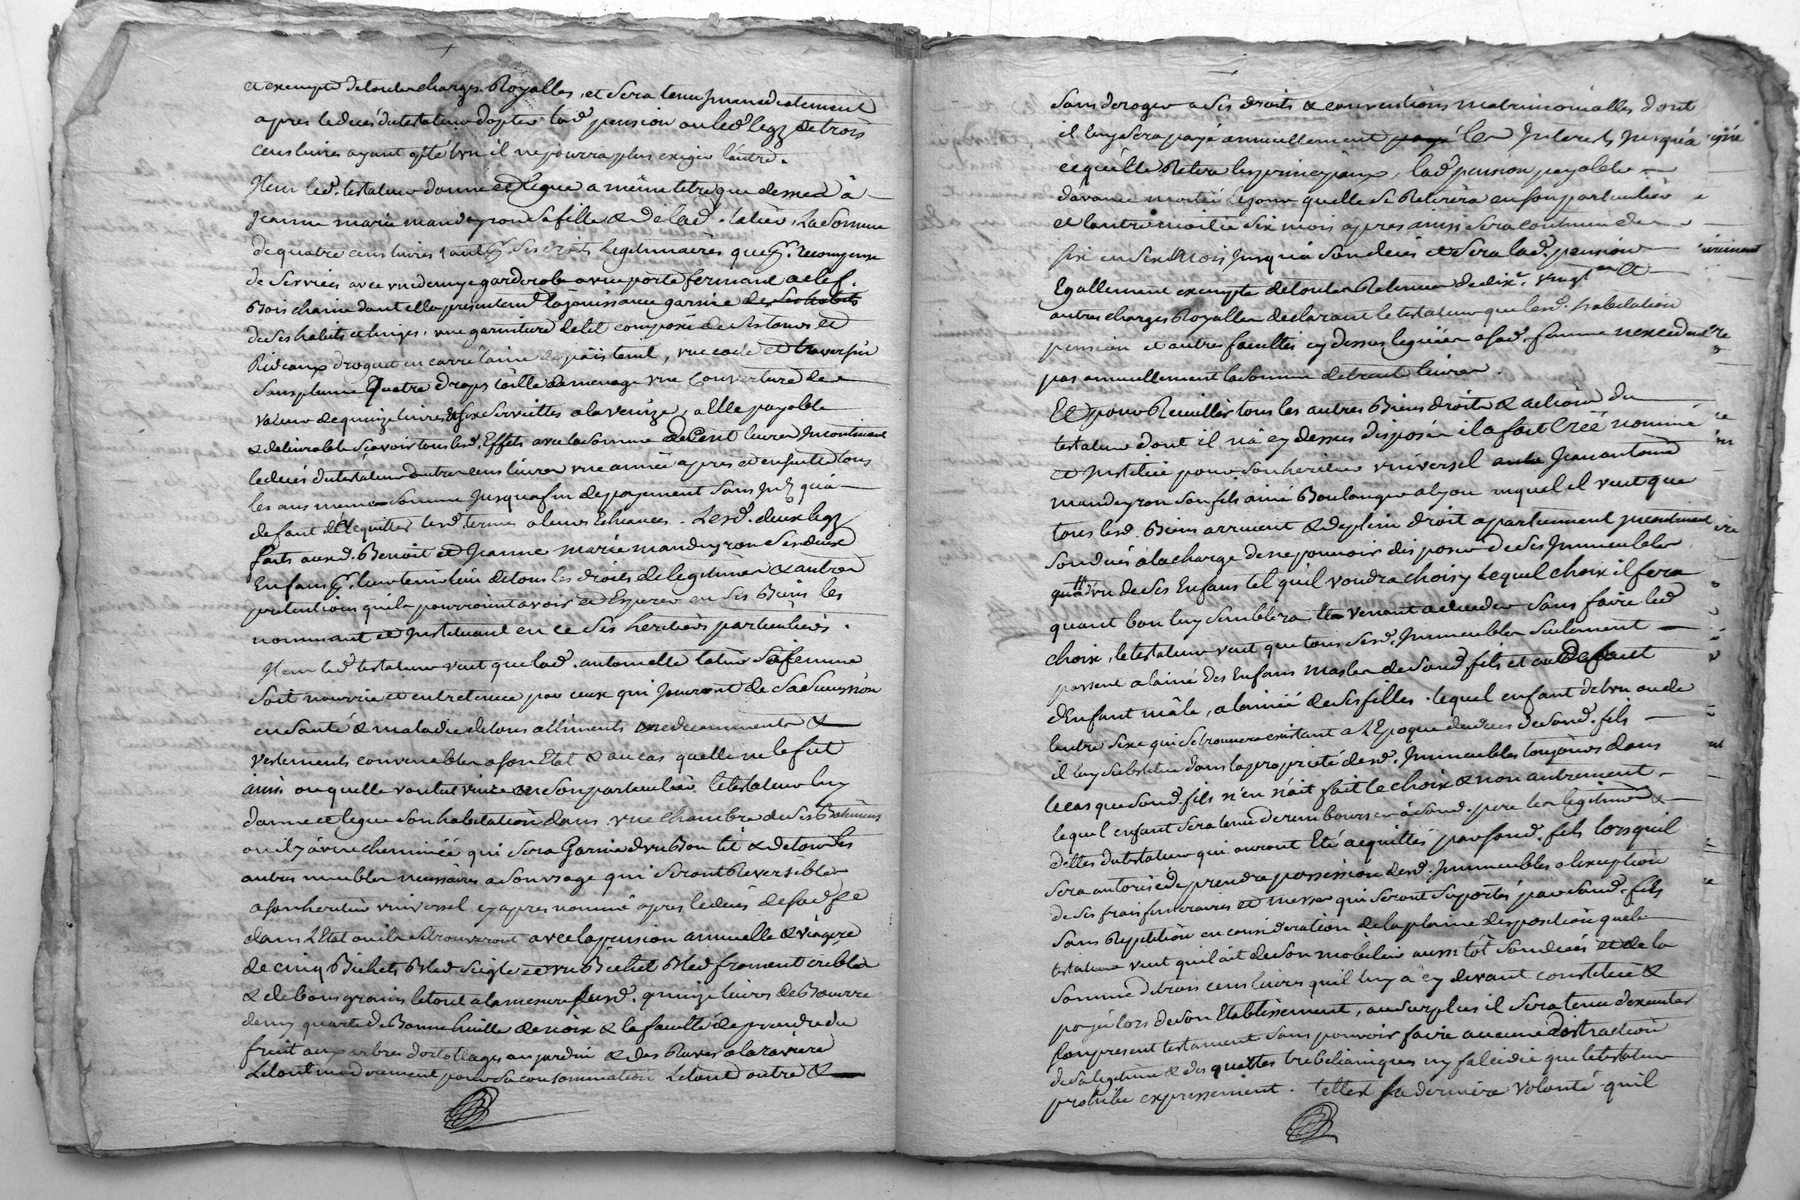 et exempte de toutes charges Royalles, et sera tenu immediatement
apres le decés du testateur d'opter lad. pension ou led. legz de trois
cens livres ayant opté l'un il ne pourra plus exiger l'autre.
Item led. testateur donne et legue a même titre que dessus à
Jeanne marie mandeyron sa fille & de lad. tatin, La Somme
de quatre cens livres tant p. ses droits legitimaires que p. recompense
de services avec une garderobe avec porte fermant a clef.
Bois chaine dont elle a presentement la jouissance garnie de
de ses habits et linges, une garniture de lit composée de et
Rideaux droguet en carré laine, une coete et traversin
sans plume Quatre draps toille de menage une Couverture de
valeur de quinze livres et six serviettes a la venize, a Elle payable
& delivrable Scavoir tous lesd. Effets avec la somme de Cent livres Incontinant
le decés du testateur autres cens livres une année apres et ensuitte tous
les ans meme somme Jusqua fin de payement sans qua
defaut d'acquitter lesd. termes a leurs Echeances. Lesd. deux legz
faits auxd. Benoit et Jeanne marie mandeyron ses deux
Enfans p. leur tenir lieu de tous les droits de legitimes & autres
pretentions qu'ils pourroient avoir et Esperer en ses Biens les
nommant et Instituant en ce ses heritiers particuliers.
Item led. testateur veut que lad. antoinette tatin sa femme
soit nourrie et entretenue par ceux qui Jouiront de sa succession
en santé & maladie de tous alliments medicaments &
vestements convenables a son Etat & au cas quelle ne le fut
ainsi ou quelle voulut vivre en son particulier, le testateur luy
donne et legue son habitation dans une Chambre de ses Batimens
ou il y a une cheminée qui sera Garnie d'un Bon lit & de tous les
autres meubles necessaires a son usage qui seront Reversibles
a son heritier universel cy apres nommé apres le decés de sad. fe
dans l'Etat ou ils se trouveront avec la pension annuelle & viagere
de cinq Bichets Bled seigle et un Bichet Bled froment criblés
& de bons grains le tout a la mesure quinze livres de Beurre
demy quarte de Bonne huille de noix & la faculté de prendre du
fruit aux arbres d'ortollages au jardin & des Raves a la raviere
Le tout moderement pour sa consommation Le tout outre &
sans deroger a ses droits & conventions matrimonialles dont
il luy sera payé annuellement les Interets Jusqu'a
ce qu'elle Retire les principaux, lad. pension payable
d'avance moitié le jour quelle se Retirera en son particulier
et l'autre moitié six mois apres ainsi sera continué de
six en six mois Jusqu'a son decés et sera lad. pension
Egallement exempte de toutes Retenues de dix.e vingt.e &
autres charges Royalles declarant le testateur que lesd. habitation
pension et autres facultés cy dessus leguées a sad. femme n'excedent
pas annuellement la somme de trente livres.
Et pour Recueillir tous les autres Biens droits & actions du
testateur dont il n'a cy dessus disposé il a fait Créé nommé
et Institué pour son heritier universel Jean antoine
mandeyron son fils ainé Boulanger a lyon auquel il veut que
tous lesd. Biens arrivent & de plein droit apartiennent Incontinent
son decés a la charge de ne pouvoir disposer de ses Immeubles
qu'a un de ses Enfans tel qu'il voudra choisy lequel choix il fera
quant bon luy semblera et venant a deceder sans faire led.
choix, le testateur veut que tous sesd. Immeubles seulement
passent a l'ainé des Enfans masles de sond. fils et au Defaut
d'Enfant mâle, a l'ainée de ses filles. lequel enfant de l'un ou de
l'autre sexe qui se trouvera existant a l'Epoque du decés de sond. fils
il luy substitue dans la proprieté desd. Immeubles toujours dans
le cas que sond. fils n'en n'ait fait le choix & non autrement
lequel enfant sera tenu de rembourser a sond. pere les legitimes &
dettes du testateur qui auront Eté acquittés par sond. fils lorsqu'il
sera autorisé de prendre possession desd. Immeubles a l'exception
de ses frais funeraires et messes qui seront suportés par sond. fils
sans Repetition en consideration de la pleine disposition que le
testateur veut qu'il ait de son mobilier aussi tôt son decés et de la
somme de trois cens livres qu'il luy a cy devant constitué &
payée lors de son Etablissement, au surplus il sera tenu d'executer
son present testament sans pouvoir faire aucune distraction
de sa legitime & des quartes trebellaniques ny falcidie que le testateur
prohibe expressement. telle sa derniere volonté qu'il